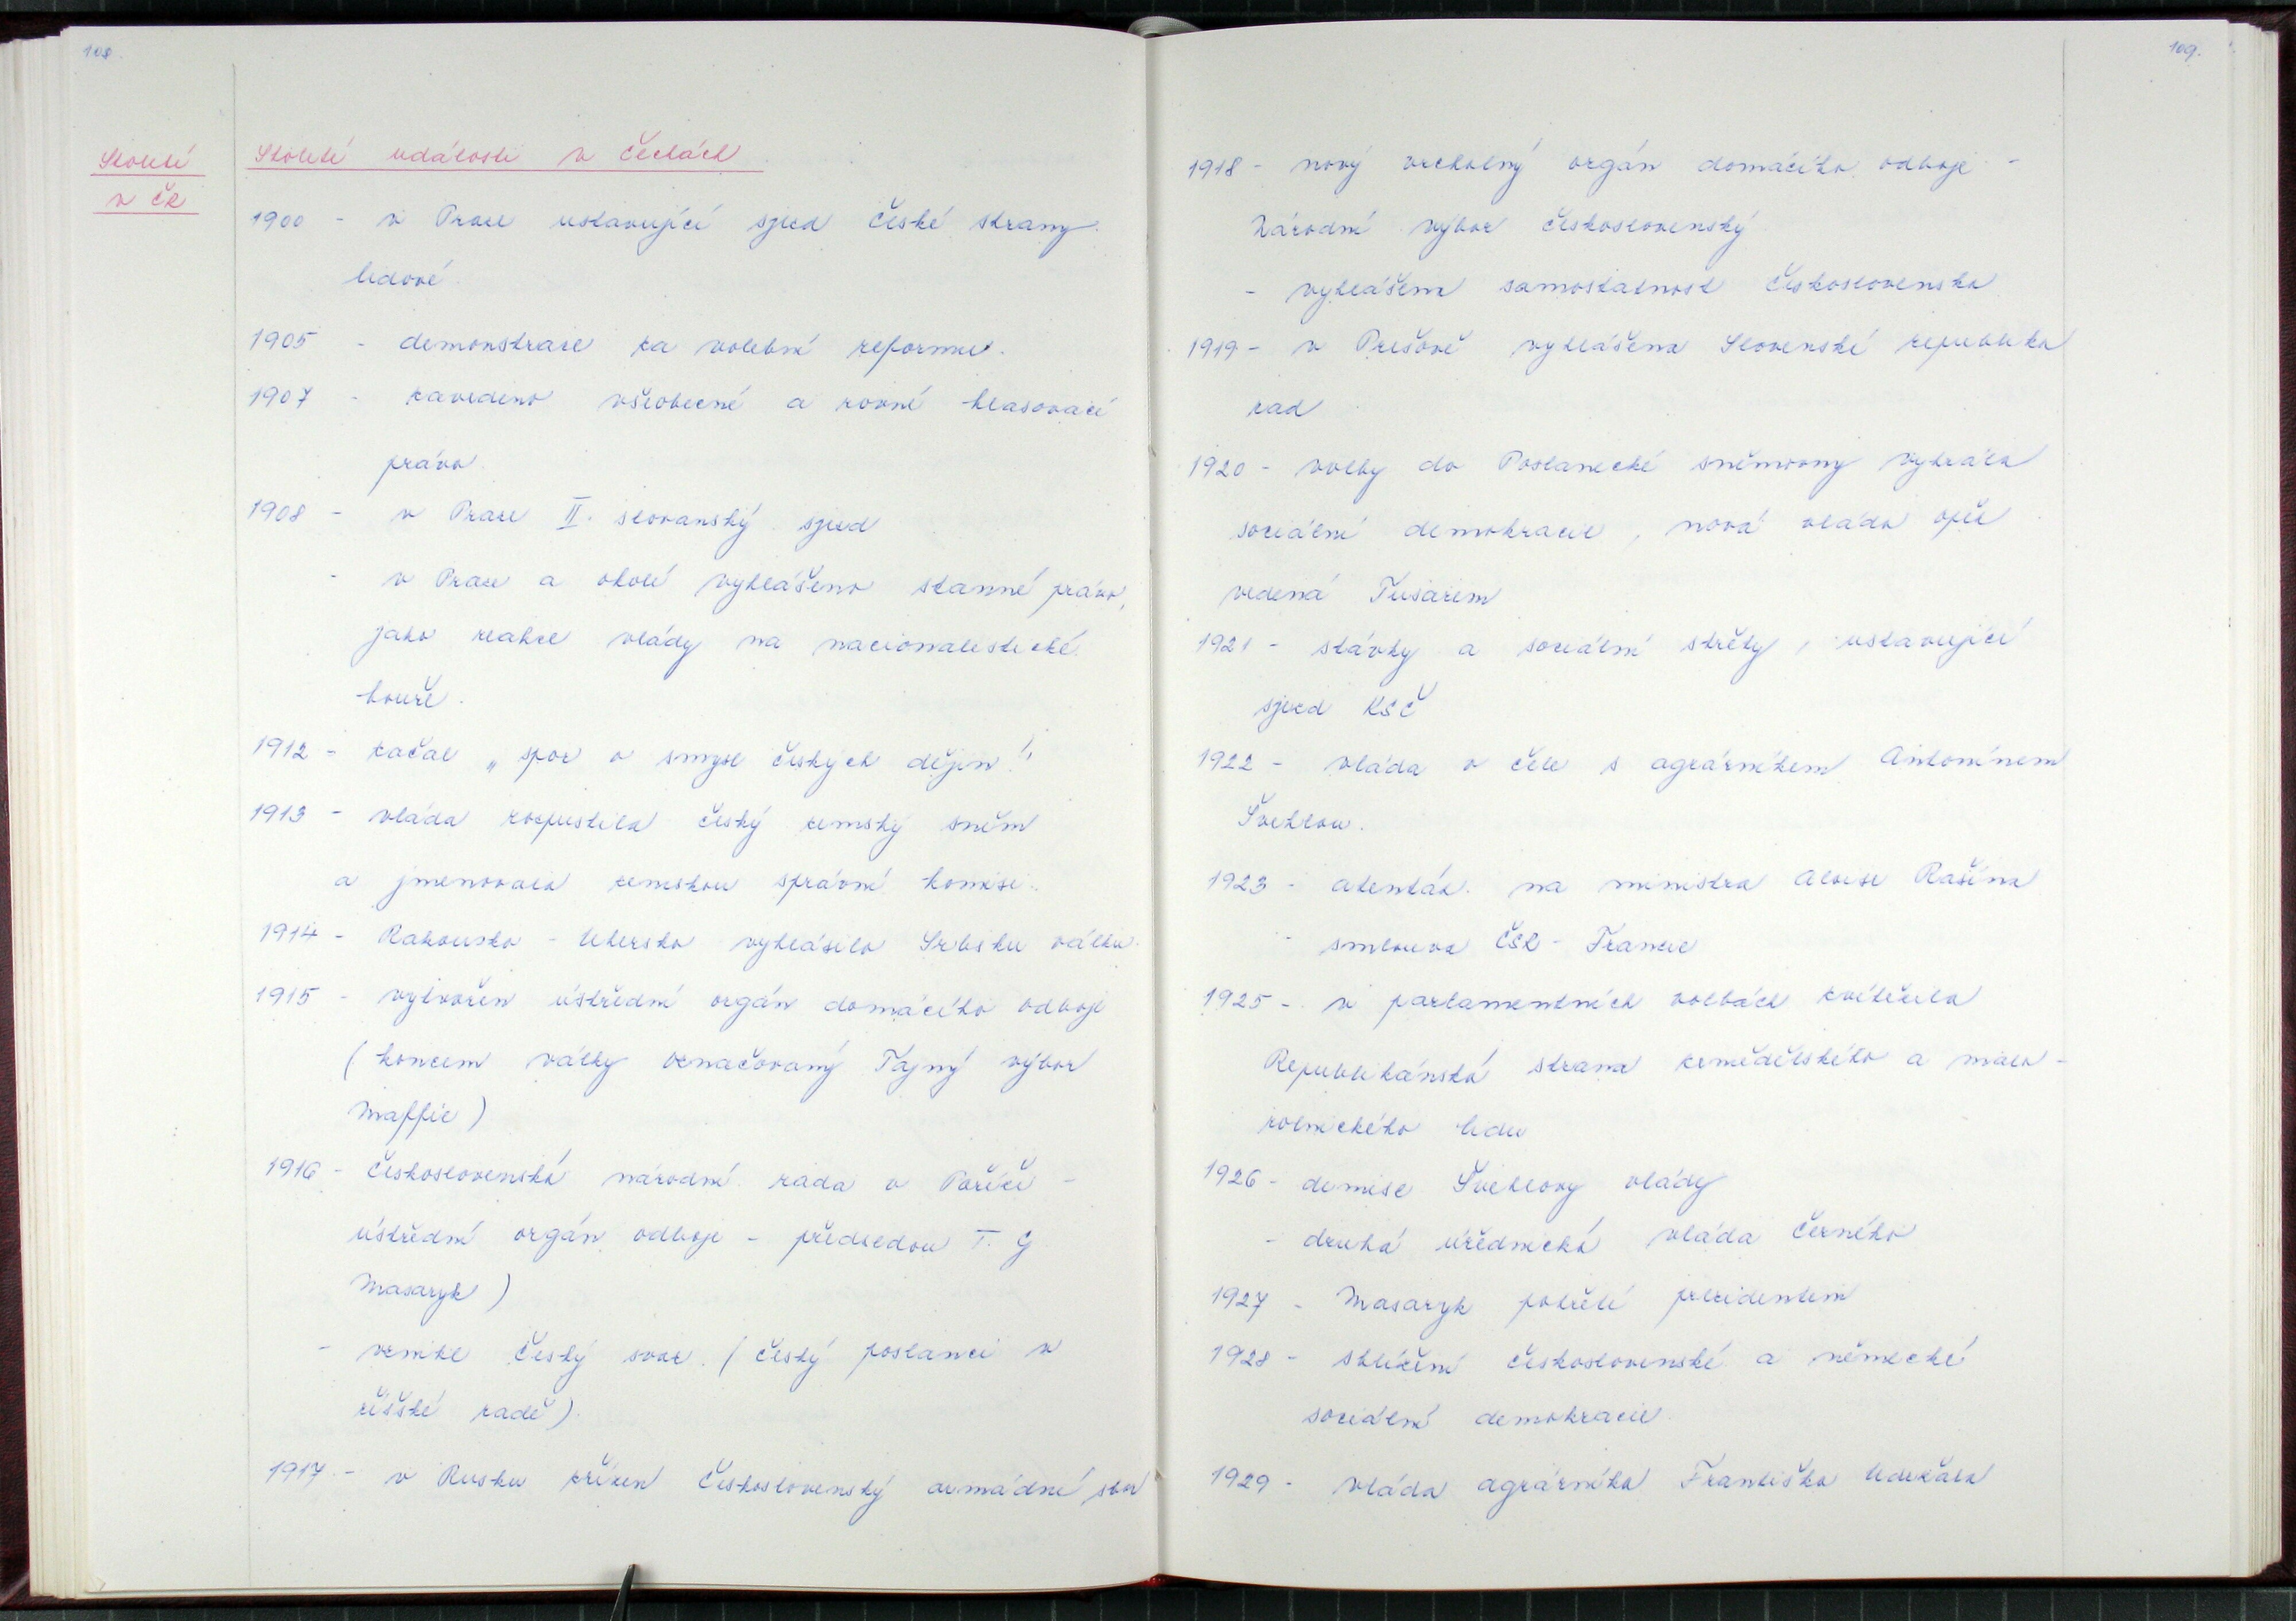 108.
Století
v ČR
Století událostí v Čechách
1900 - v Praze ustavující sjezd České strany
lidové.
1905 - demonstrace za volební reformu.
1907 - zavedeno všeobecné a rovné hlasovací
právo.
1908 - v Praze II. slovanský sjezd
- v Praze a okolí vyhlášeno stanné právo,
jako reakce vlády na nacionalistické
bouře.
1912 - začal „spor o smysl českých dějin".
1913 - vláda rozpustila český zemský sněm
a jmenovala zemskou správní komisi.
1914 - Rakousko - Uhersko vyhlásilo Srbsku válku.
1915 - vytvořen ústřední orgán domácího odboje
(koncem války označovaný Tajný výbor
Maffie)
1916 - Československá národní rada v Poříči -
ústřední orgán odboje - předsedou T. G
Masaryk)
- vznikl Český svaz. (český poslanci v
říšské radě).
1917 - v Rusku zřízen Československý armádní sbor
109.
1918 - nový vrcholný orgán domácího odboje -
Národní výbor československý
- vyhlášena samostatnost Československa
1919 - v Prešově vyhlášena Slovenská republika
rad
1920 - volby do Poslanecké sněmovny vyhrála
sociální demokracie, nová vláda opět
vedená Tusarem
1921 - stávky a sociální střety, ustavující
sjezd KSČ
1922 - vláda v čele s agrárníkem Antonínem
Švehlou.
1923 - atentát na ministra Aloise Rašína
- smlouva ČSR - Francie
1925 - v parlamentních volbách zvítězila
Republikánská strana zemědělského a malo-
rolnického lidu
1926 - demise Švehlovy vlády
- druhá úřednická vláda Černého
1927 - Masaryk potřetí prezidentem
1928 - sblížení československé a německé
sociální demokracie.
1929 - vláda agrárníka Františka Udržala